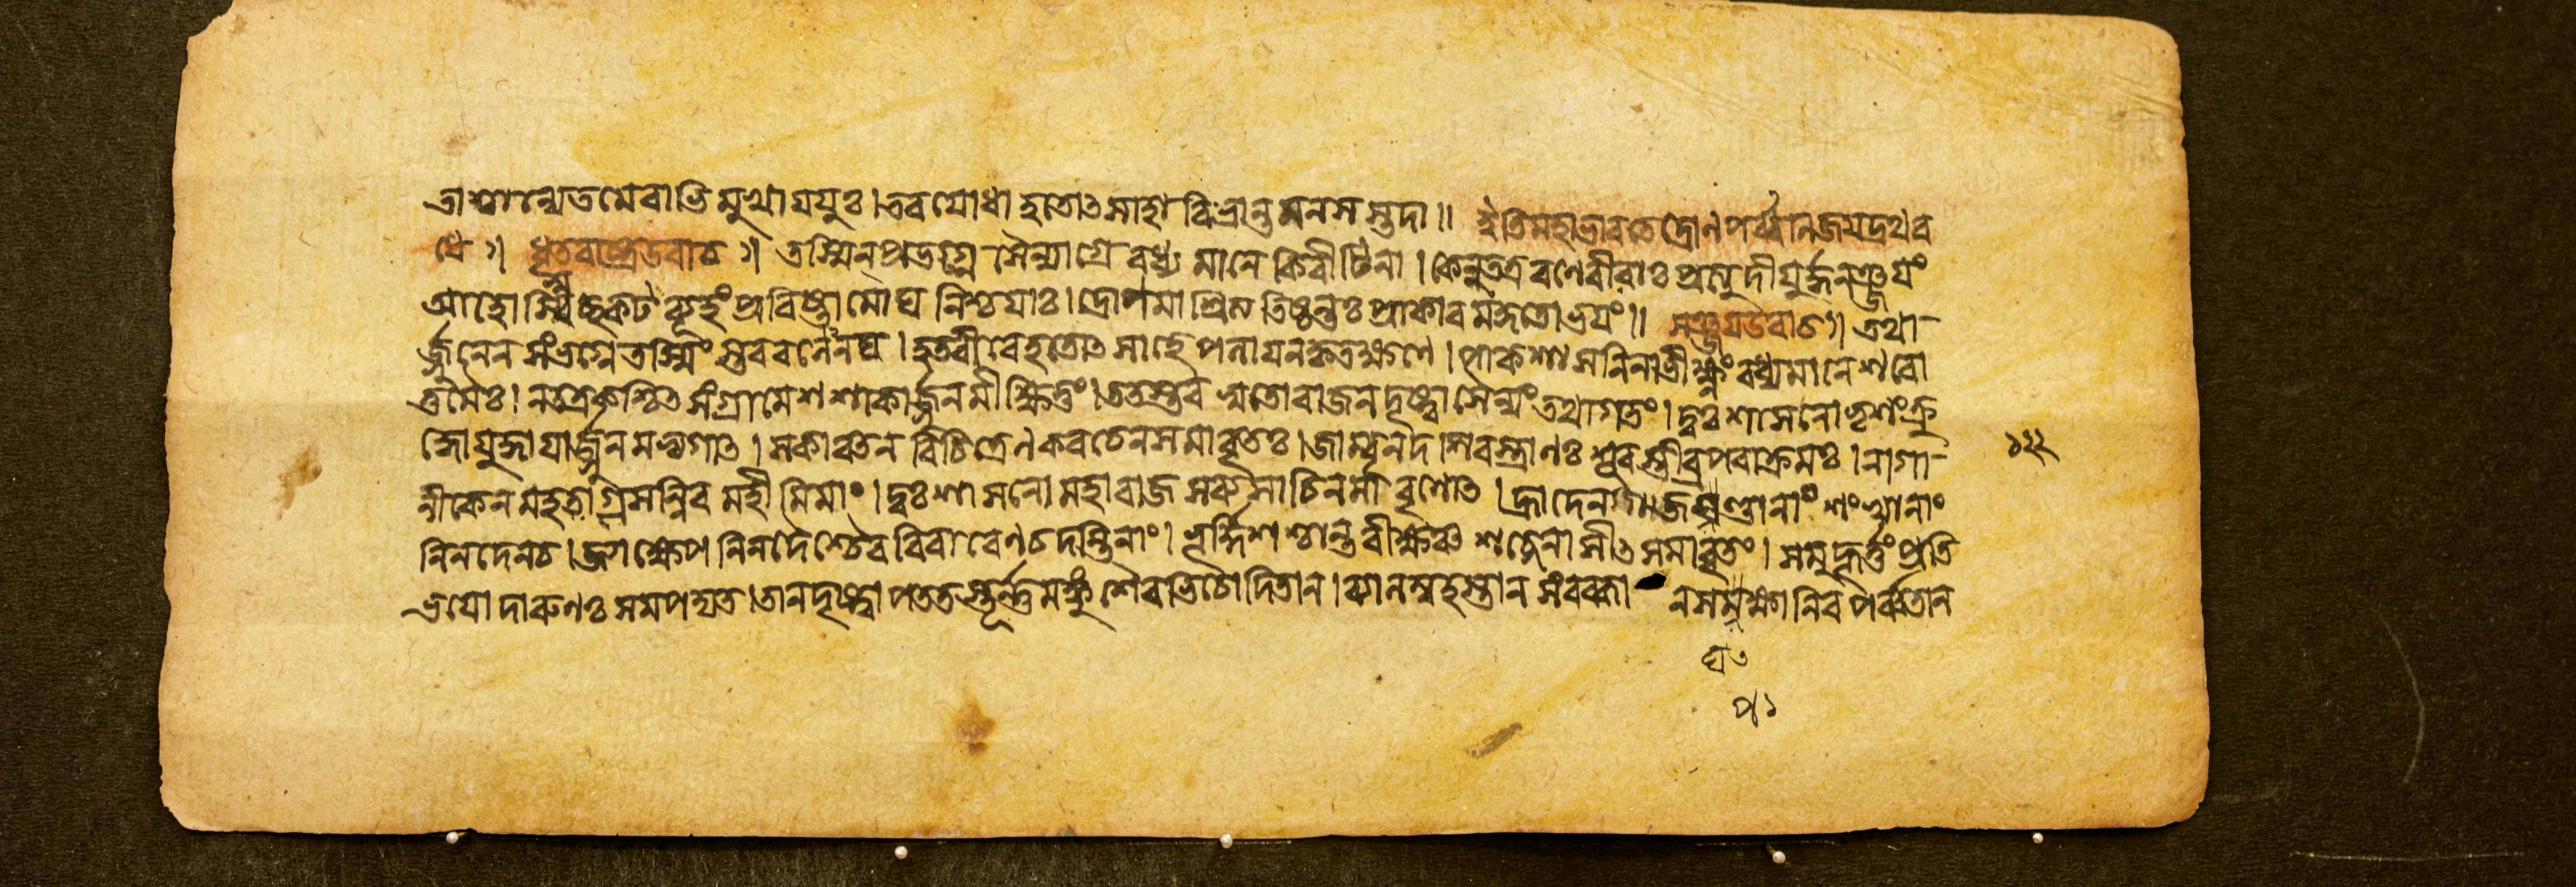 ত্রাশ্বান্যেতমেবাভিমুখা যযুঃ। তব যোধা হতোৎসাহা বিভ্রান্তমনসস্তদা॥ ইতি মহাভারতে দ্রোণপর্ব্বানি জয়দ্রথব
ধে ৷৷ ধৃতরাষ্ট্র উবাচ ৷৷ তস্মিন্ প্রভগ্নে সৈন্যাগ্রে বধ্যমানে কিরীটিনা। কেনু তত্র রণে বীরাঃ প্রত্যুদীযুর্দ্ধনঞ্জয়ং
আহোস্বিচ্ছকটব্যূহং প্রবিষ্টা মোঘনিশ্চয়াঃ। দ্রোণমাশ্রিত্য তিষ্ঠন্তঃ প্রাকারমকুতোভয়ং॥ সঞ্জয় উবাচ ৷৷ তথা
র্জ্জুনেন সংভগ্নে তস্মিংস্তব বলেনঘ। হতবীরে হতোৎসাহে পলায়নকৃতক্ষণে। পাকশাসনিনাভীক্ষ্ণং বধ্যমানে শরো
ত্তমৈঃ। ন তত্র কশ্চিৎ সংগ্রামে শশাকার্জ্জুনমীক্ষিতুং। ততস্তব সুতো রাজন্ দৃষ্ট্বা সৈন্যং তথাগতং। দুঃশাসনো ভৃশং ক্রু
দ্ধো যুদ্ধায়ার্জ্জুনমভ্যগাৎ। স কাঞ্চনবিচিত্রেণ কবচেন সমাবৃতঃ। জাম্বুনদশিরস্ত্রাণঃ শূরস্তীব্রপরাক্রমঃ। নাগা
নীকেন মহতা গ্রসন্নিব মহীমিমাং। দুঃশাসনো মহারাজ সব্যসাচিনমাবৃণোৎ। হ্রাদেন গজঘণ্টানাং শংখানাং
নিনদেন চ। জ্যাক্ষেপনিনদৈশ্চৈব বিরাবেণ চ দন্তিনাং। ভূর্দ্দিশশ্চান্তরীক্ষঞ্চ শব্দেনাসীৎ সমাবৃতং। স মুহূর্ত্তং প্রতি
ভয়ো দারুণঃ সমপদ্যত। তান্ দৃষ্ট্বা পততস্তূর্ণমঙ্কুশৈরভিচোদিতান্। ব্যালম্বহস্তান্ সংরব্ধান্ সপক্ষানিব পর্ব্বতান্
১২২